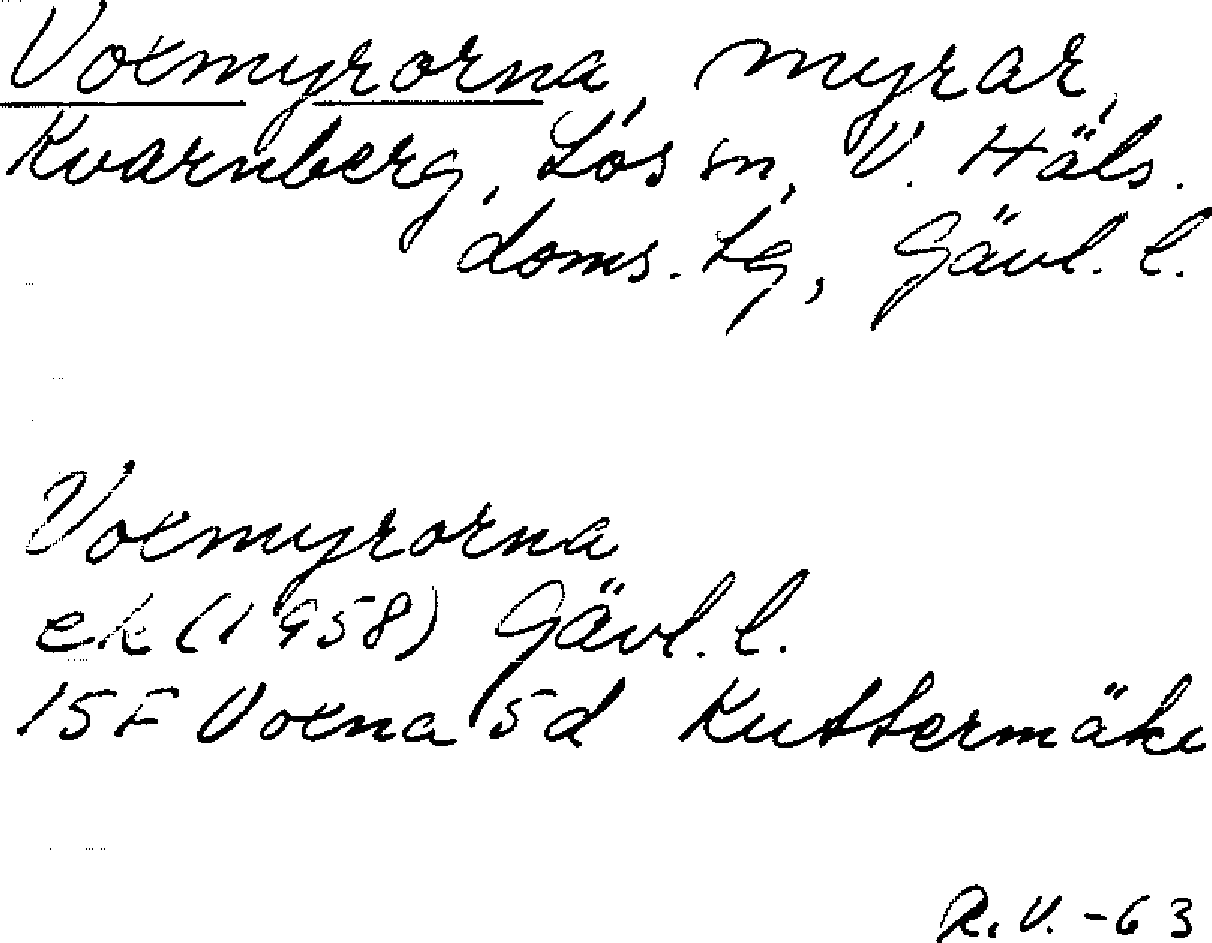 Voxmyrorna, myrar,
Kvarnberg, Los sn, V. Häls.
doms. tg, Gävl. l.
Voxmyrorna
ek (1958) Gävl. l.
15F Voxna 5d Kuttermäki
R.V. -63